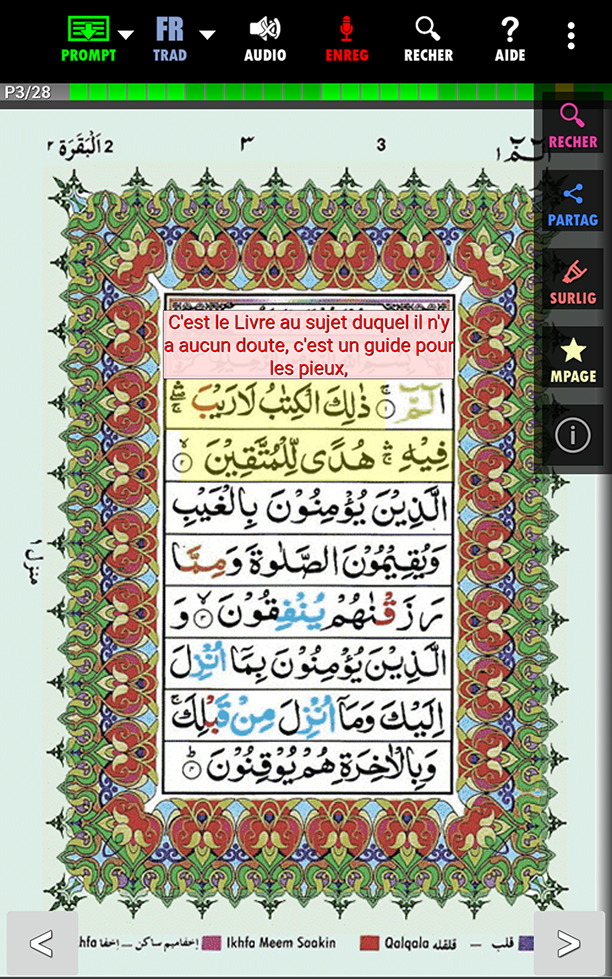 PROMPT FR TRAD AUDIO ENREG RECHER AIDE
P3/28
RECHER
PARTAG
SURLIG
MPAGE
2 اَلْبَقَرَة ٢ ٣ 3 الٓمّٓ ١
C'est le Livre au sujet duquel il n'y
a aucun doute, c'est un guide pour
les pieux,
الٓمّٓ ۚ ١ ذٰلِكَ الْكِتٰبُ لَا رَيْبَ ۛ ۖ ۚ
فِيْهِ ۛ ۚ هُدًى لِّلْمُتَّقِيْنَ ۙ ٢
الَّذِيْنَ يُؤْمِنُوْنَ بِالْغَيْبِ
وَيُقِيْمُوْنَ الصَّلٰوةَ وَمِمَّا
رَزَقْنٰهُمْ يُنْفِقُوْنَ ۙ ٣ وَ
الَّذِيْنَ يُؤْمِنُوْنَ بِمَآ اُنْزِلَ
اِلَيْكَ وَمَآ اُنْزِلَ مِنْ قَبْلِكَ ۚ
وَبِالْاٰخِرَةِ هُمْ يُوْقِنُوْنَ ؕ ٤
منزل ١
اخفا اخفامیم ساکن Ikhfa Meem Saakin قلقله Qalqala قلب